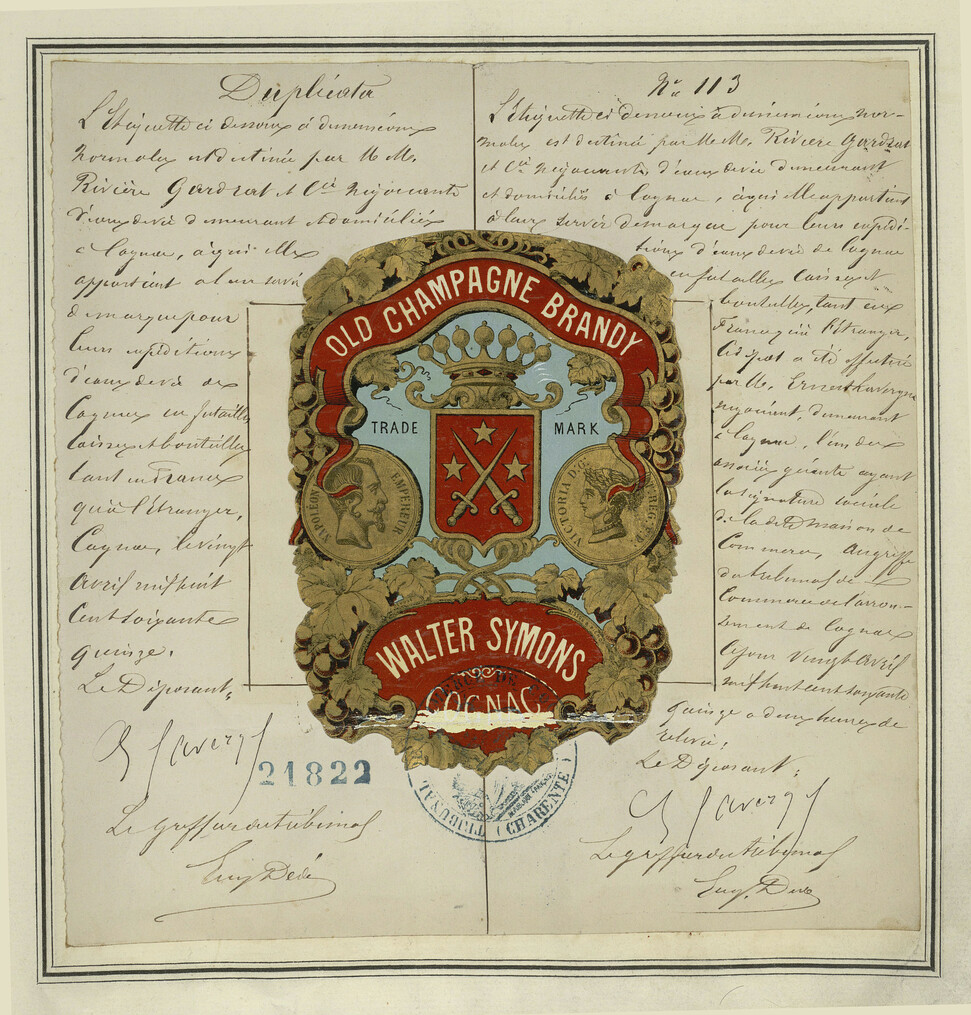 Duplicata
L'Etiquette ci dessous à dimensions
normales est destinée par M M.
Rivière Gardrat et Cie négociants
d'eaux de vie demeurant et domiciliés
à Cognac, à qui elle
appartient à leur servir
de marque pour
leurs expéditions
d'eaux de vie de
Cognac en futailles
caisses et bouteilles
tant en France
qu'à l'étranger,
Cognac, le vingt
avril mil huit
cent soixante
quinze.
Le Déposant,
E Lavergne
21822
Le Greffier du tribunal
Eug Dédé
No 113
L'Etiquette ci dessous à dimensions nor-
males est destinée par M M. Rivière Gardrat
et Cie négociants, d'eaux de vie demeurant
et domiciliés à Cognac, à qui elle appartient
à leur servir de marque pour leurs expédi-
tions d'eaux de vie de Cognac
en futailles caisses et
bouteilles, tant en
France qu'à l'étranger,
Ce dépôt a été effectué
par M. Ernest Lavergne
négociant, demeurant
à Cognac, l'un des
associés gérants ayant
la signature sociale
de la dite maison de
Commerce, au greffe
du tribunal de
Commerce de l'arron-
dissement de Cognac
ce jour vingt avril
mil huit cent soixante
quinze à deux heures de
relevée.
Le Déposant,
E Lavergne
Le greffier du tribunal
Eug. Dédé
OLD CHAMPAGNE BRANDY
TRADE MARK
NAPOLÉON EMPEREUR
VICTORIA D:G:
WALTER SYMONS
COGNAC
TRIBUNAL
(CHARENTE)